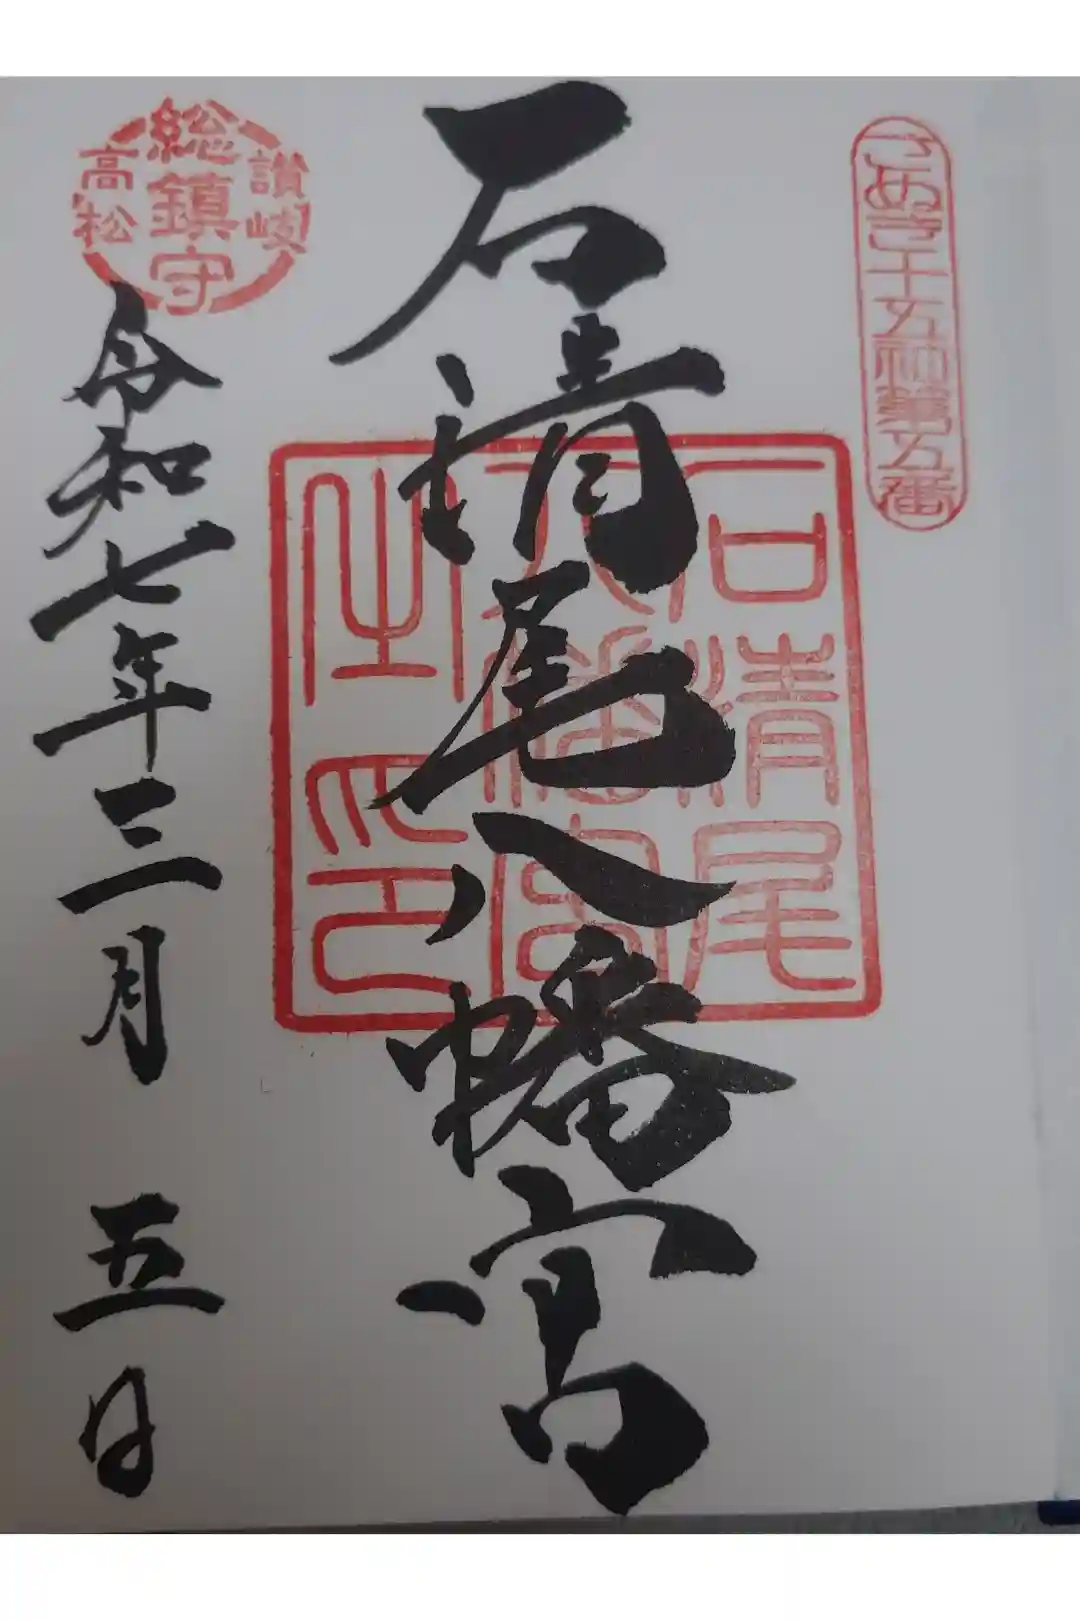 さぬき十五社第五番
石清尾八幡宮
石清尾
八幡宮
之印
讃岐
総鎮守
高松
令和七年三月 五日